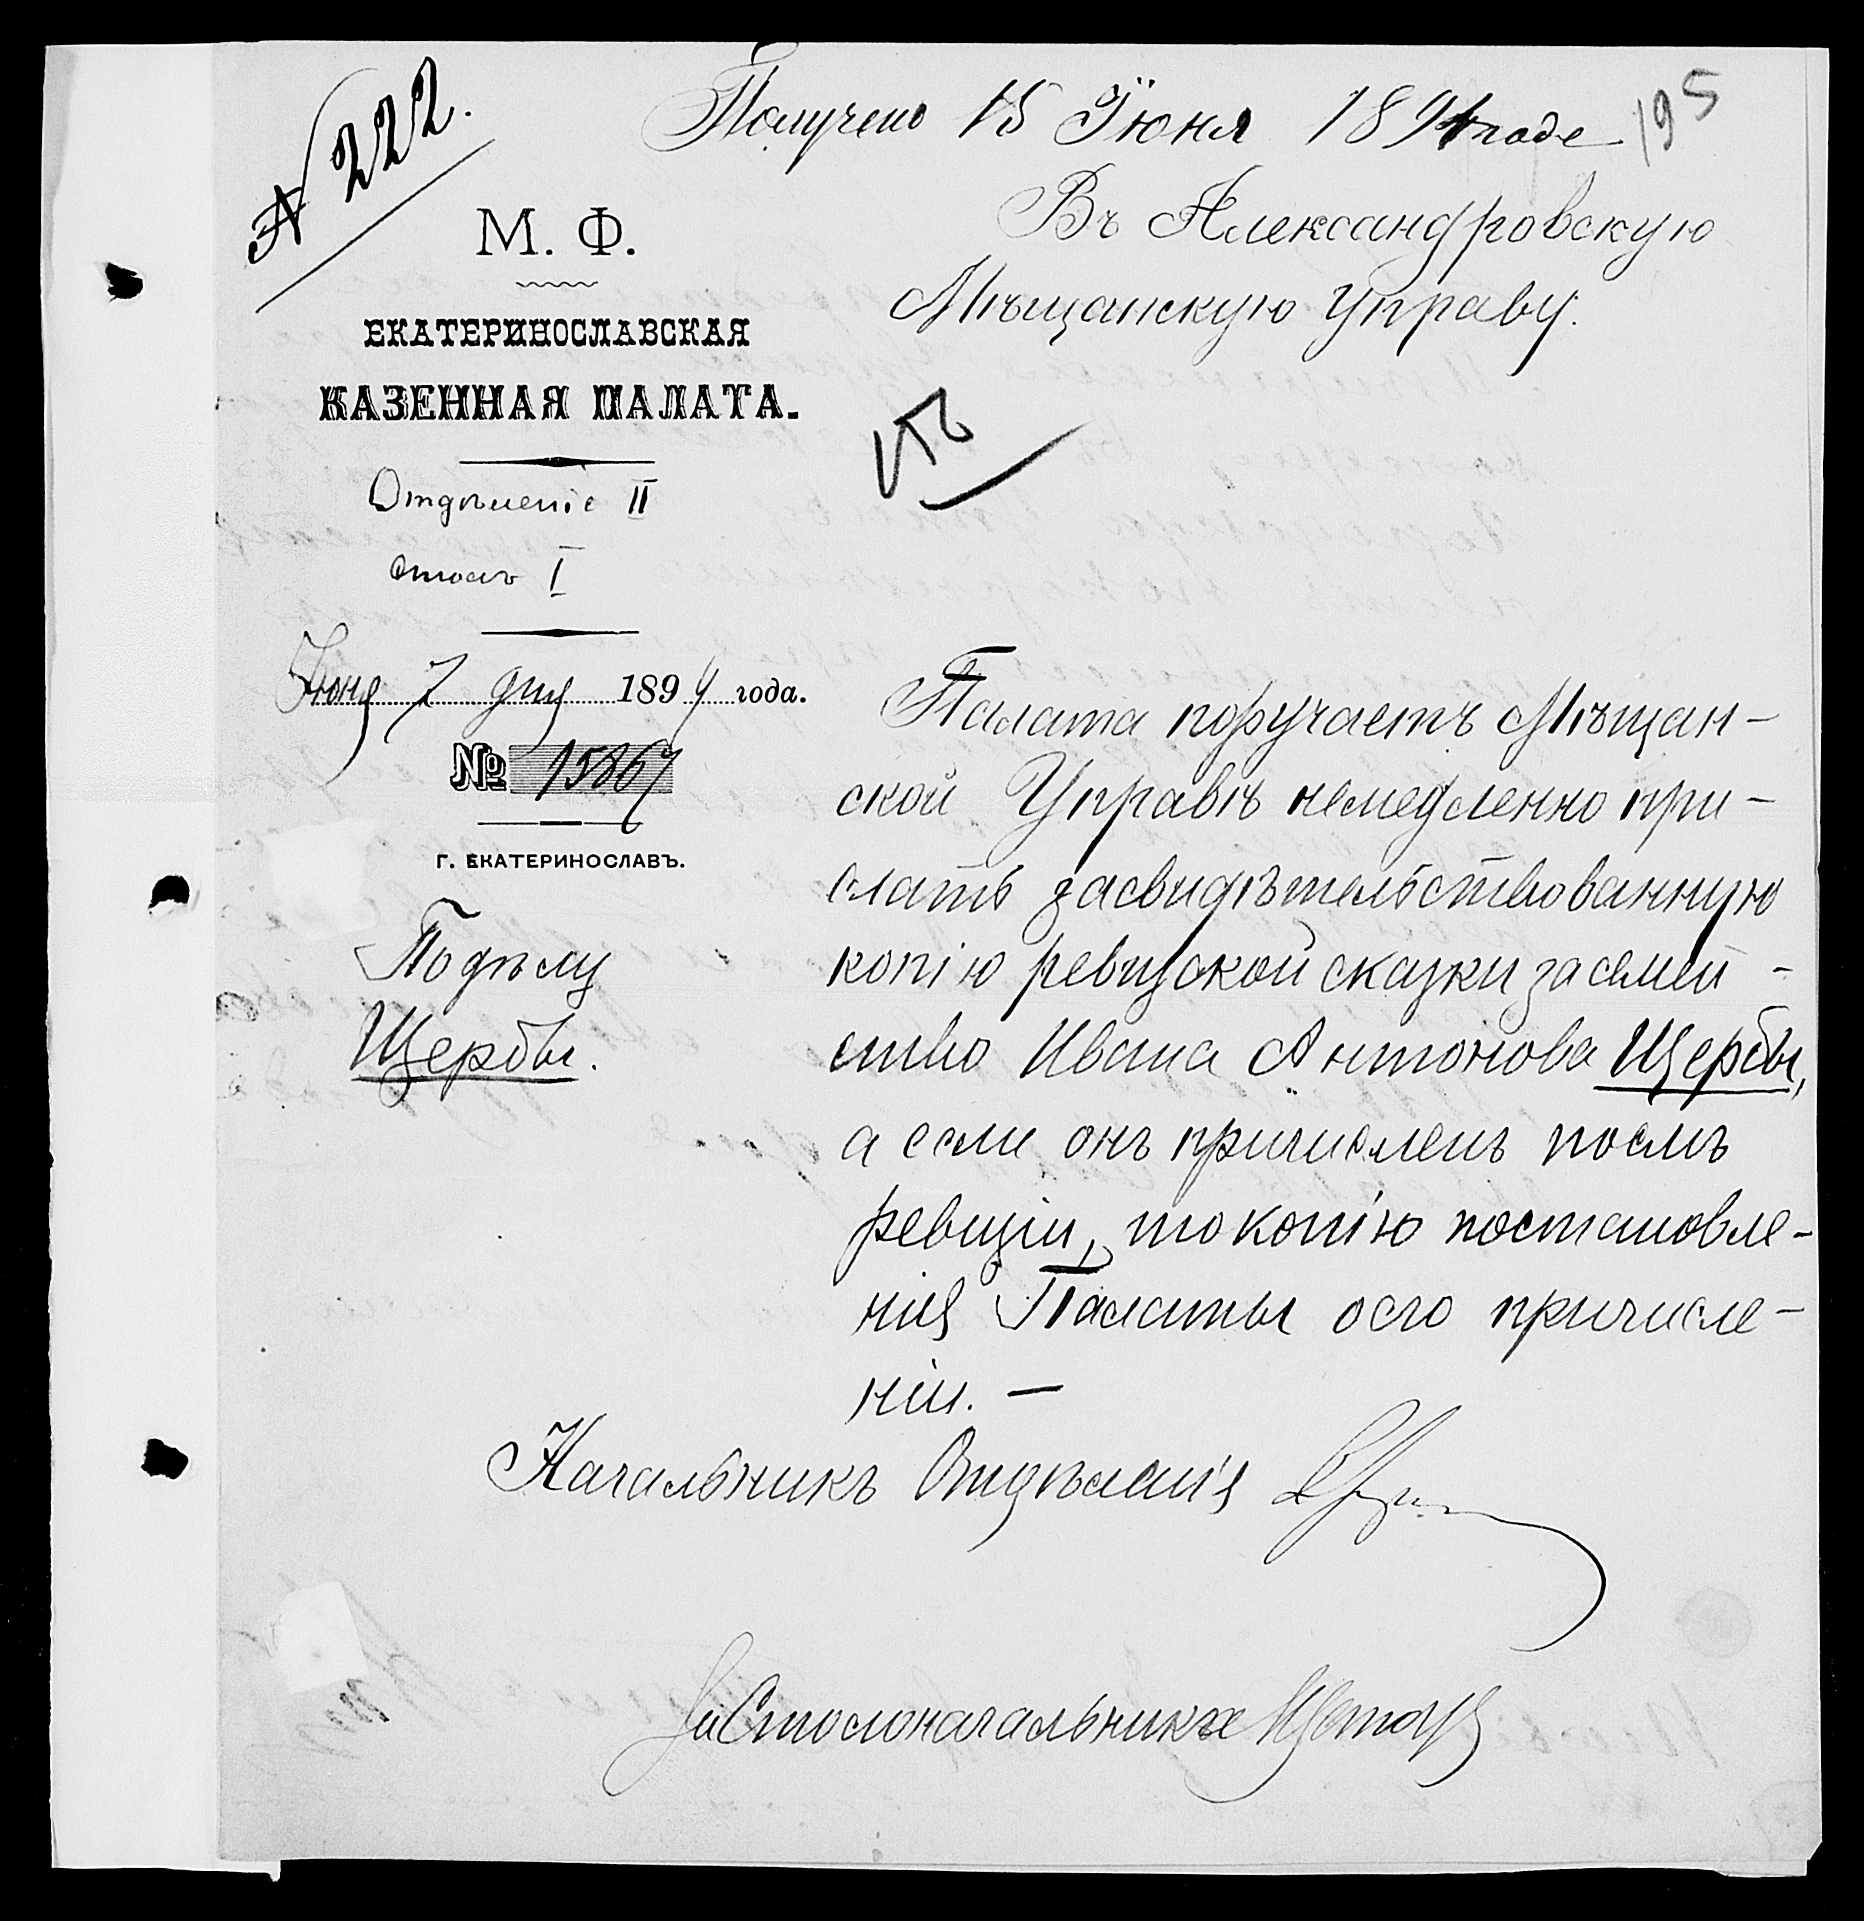 № 222.
Получено 15 Іюня 1894 годе
195
Въ Александровскую
Мѣщанскую Управу.
М. Ф.
ЕКАТЕРИНОСЛАВСКАЯ
КАЗЕННАЯ ПАЛАТА.
Отдѣленіе II
Столъ I
Іюня 7 дня 1894 года.
№ 15867
Г. ЕКАТЕРИНОСЛАВЪ.
По дѣлу
Щербы.
Палата поручаетъ Мѣщан-
ской Управѣ немедленно при-
слать засвидѣтельствованную
копію ревизской сказки за семей-
ство Ивана Антонова Щербы,
а если онъ причисленъ послѣ
ревизіи, то копію постановле-
нія Палаты о его причисле-
ніи. —
Начальникъ Отдѣленія
За Столоначальника